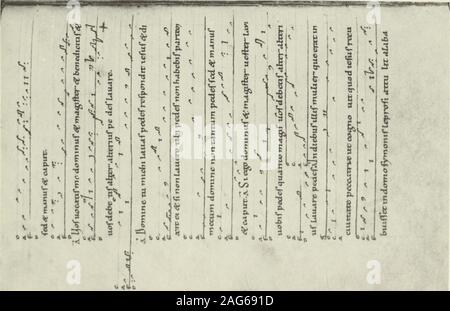 sed & manus & caput.
A Vos uocatis me dominus & magister & benedictus &
uos debetis alter alterius pedes lauare.
A Domine tu michi lauas pedes respondit iesus & di
xit ei & si non lauero tibi pedes non habebis partem
mecum domine non tantum pedes sed & manus
& caput. A Si ego dominus & magister uester laui
uobis pedes quanto magis uos debetis alter alteri
us lauare pedes. A In diebus illis mulier que erat in
ciuitate peccatrix ut cogno uit quod iesus recu
buisset in domo symonis leprosi attu lit alaba
alamy
Image ID: 2AG691D
www.alamy.com